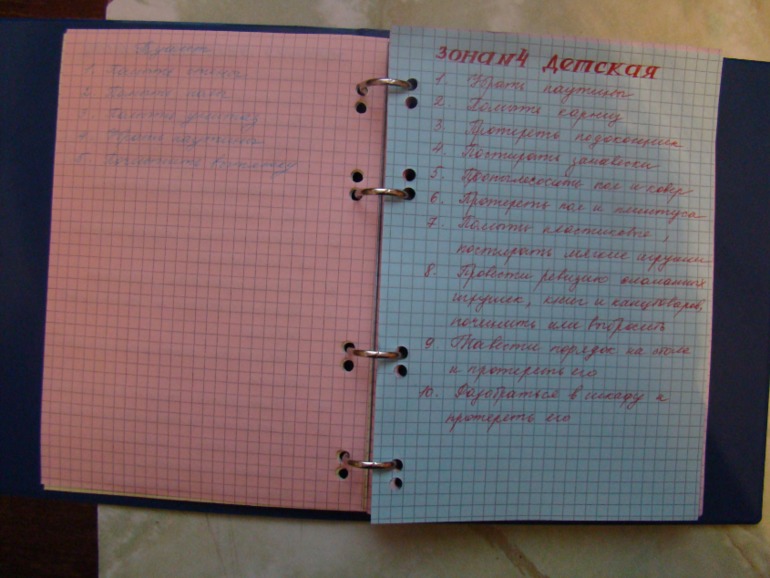 1. Помыть
2. Помыть
3. Помыть
4. Убрать паутину
5. Почистить
Зона №4 Детская
1. Убрать паутину
2. Помыть карниз
3. Протереть подоконник
4. Постирать занавески
5. Пропылесосить пол и ковёр
6. Протереть пол и плинтуса
7. Помыть пластиковые,
постирать мягкие игрушки
8. Провести ревизию сломанных
игрушек, книг и канцтоваров,
починить или выбросить
9. Навести порядок на столе
и протереть его
10. Разобраться в шкафу и
протереть его